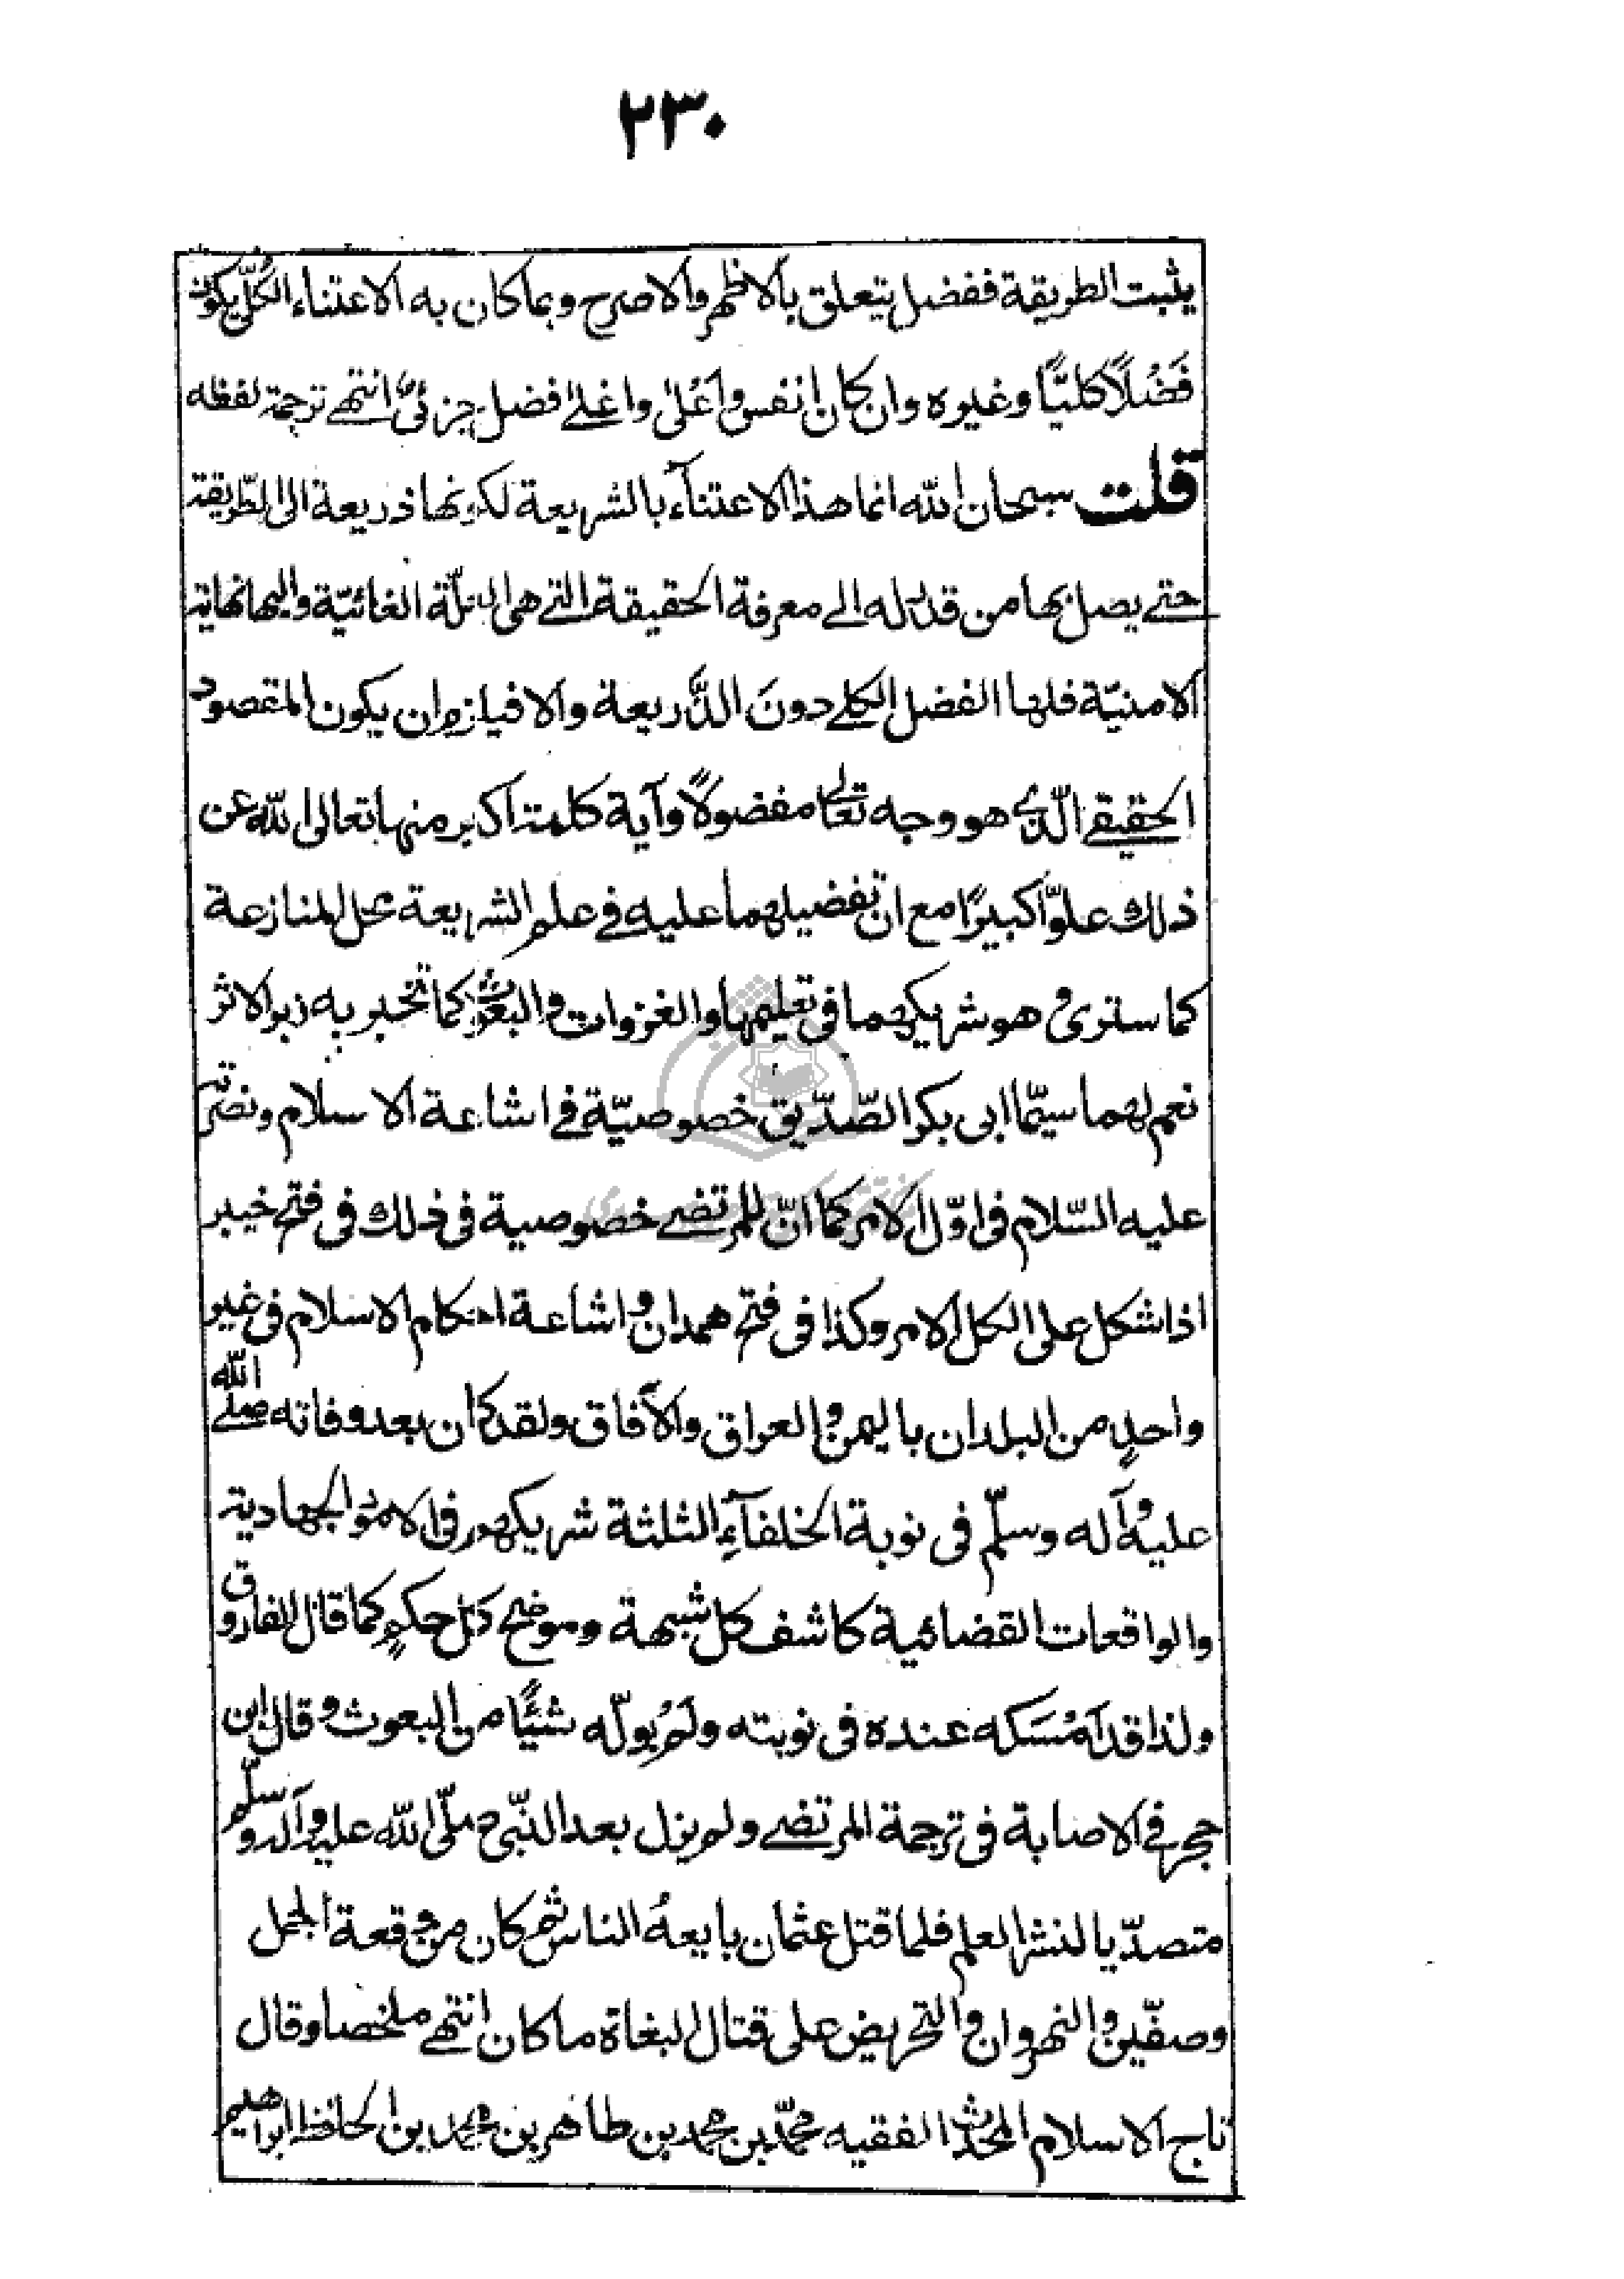 ٢٣٠
يثبت الطريقة ففضل يتعلق بالاظهر والاصرح وبما كان به الاعتناء الكُلّي يكون
فَضْلاً كليًّا وغيره وان كان انفس واَعْلىٰ واغلےٰ فضل جزئىٌ انتهے ترجمة لفظه
قلت سبحان الله انما هذا الاعتنآء بالشريعة لكونها ذريعة الى الطّريقة
حتے يصل بها من قدّر له الے معرفة الحقيقة التے هى العلّة الغائيّة واليها نهاية
الامنيّة فلها الفضل الكلے دونَ الذَّريعة والا فيلزم ان يكون المقصود
الحقيقے الّذى هو وجه تعالٰى مفضولاً وآية كلمة اكبر منها تعالى الله عن
ذلك علوًّا كبيرًا مع ان تفضيلهما عليه فے علم الشريعة محل المنازعة
كما سترىٰ وهو شريكهما فى تعليمها والغزوات والبعوث كما تخبر به زبر الاثر
نعم لهما سيّما ابى بكر الصّدّيق خصوصيّة فے اشاعة الاسلام ونصرته
عليه السّلام فى اوّل الامر كما انّ للمرتضے خصوصية فى ذلك فى فتح خيبر
اذ اشكل على الكل الامر وكذا فى فتح همدان واشاعة احكام الاسلام فى غير
واحدٍ من البلدان باليمن والعراق والآفاق ولقد كان بعد وفاته صلے الله
عليه وآله وسلّم فى نوبة الخلفآءِ الثلثة شريكهم فى الامور الجهادية
والواقعات القضائية كاشف كل شبهة وموضح كل حكمٍ كما قال الفاروق
ولذا قد اَمْسَكه عنده فى نوبته ولم يُولّه شيئًا من البعوث وقال ابن
حجر فے الاصابة فى ترجمة المرتضے ولم يزل بعد النّبىّ صلّى الله عليه وآله وسلّم
متصدّيا لنشر العلم فلما قتل عثمان بايعهُ الناس ثم كان من وقعة الجمل
وصفّين والنهروان والتحريض على قتال البغاة ما كان انتهے ملخصا وقال
تاج الاسلام المحدّث الفقيه محمّد بن محمد بن طاهر بن محمد بن الحافظ ابراهيم